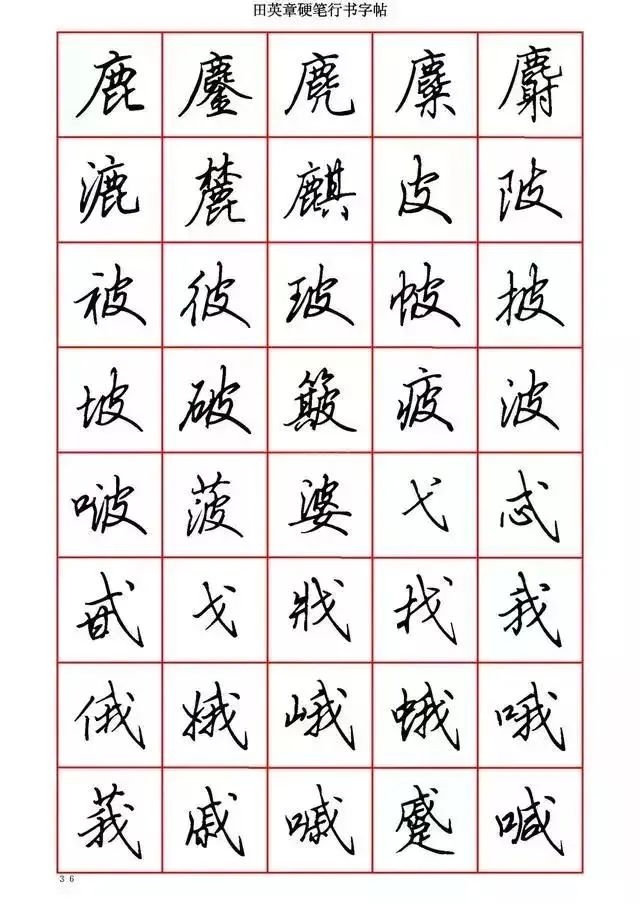 田英章硬笔行书字帖
鹿 鏖 麂 麇 麝
漉 麓 麒 皮 陂
被 彼 玻 帔 披
坡 破 簸 疲 波
啵 菠 婆 弋 忒
甙 戈 戕 找 我
俄 娥 峨 蛾 哦
莪 戚 嘁 蹙 喊
36